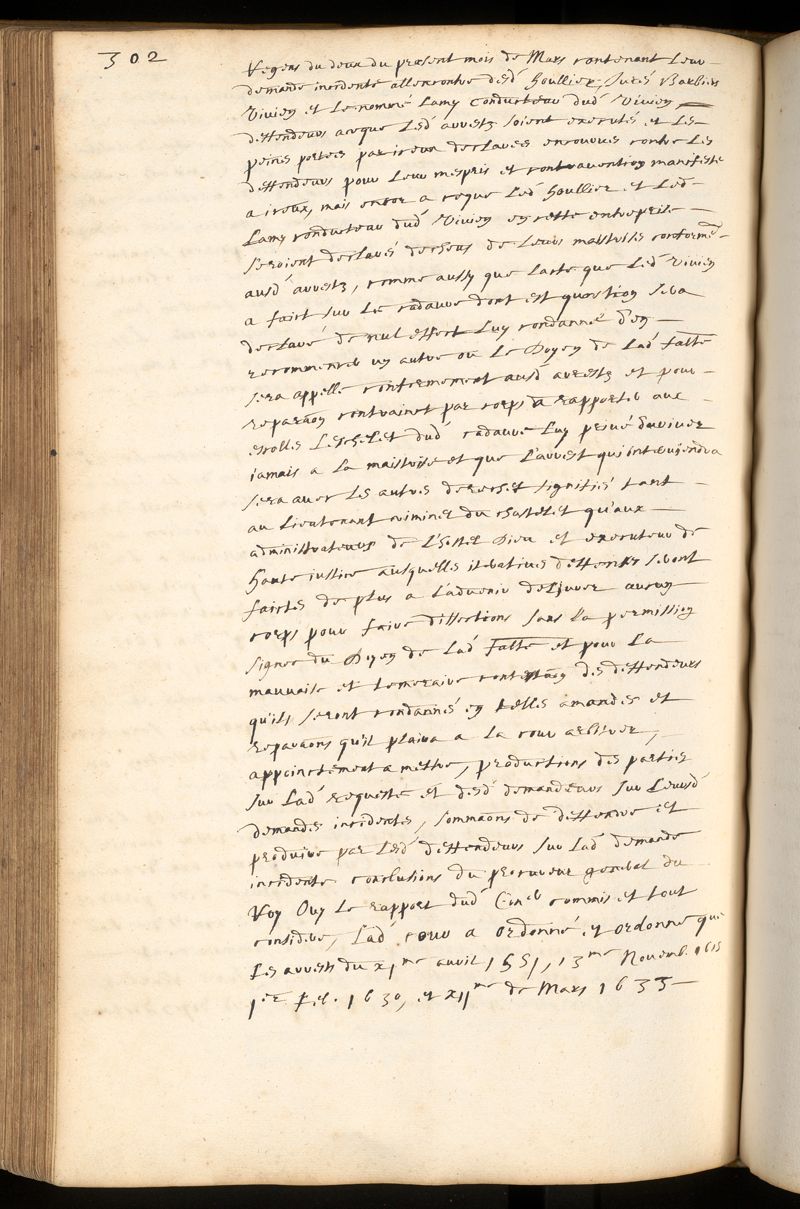 302
Veyens du deux du present mois de Mars contenant leur
demande incidente allencontre desd. Houllier, Jurés Barbiers
Vivien et le nommé Lamy Conducteur dud Vivien
deffendeurs aceque lesd arrests soient executés et les
peines portees par iceux declarees encourues contre les
deffendeurs pour leur mespris et contravention manifeste
a iceux, mais encor a ceque led houllier et led
Lamy conducteur dud Vivien en cette entreprise
seroient declarés decheus de leurs maistrises conformem.
ausd arrests, comme aussy que lacte que led Vivien
a faict sur le cadavre dont est question sera
declaré de nul effect luy condanné d'en
recommencer un autre ou le Doyen de lad fatte
sera appellé conformement ausd arrests et pour
reparaon contrainct par corps a rapporter aux
escolles leschelet dud cadavre luy privé darriver
jamais a la maistrise et que l'arrest qui interviendra
sera avec les autres derechef signifié tant
au lieutenant criminel du chastelet qu'aux
administrateurs de l'hostel Dieu et executeur de
haute justice ausquelles iteratives deffenses seront
faictes de plus a ladvenir delivrer aucun
corps pour faire dissections sans la permission
signee du Doyen de lad fatte et pour la
mauvaise et temeraire contestaon des deffendeurs
qu'ils seront condannés en telles amandes et
reparaons quil plaira a la cour arbitrer,
appoinctement a mettre, productions des parties
sur lad requeste et desd demandeurs sur leursd
demandes incidentes, sommaons de deffendre et
produire par lesd deffendeurs sur lad demande
incidente conclusions du procureur general du
Roy Ouy le rapport dud Con.er commis et tout
consideré, Lad cour a ordonné et ordonne que
les arrests du XI.me avril 1551, 13.me Novemb. 1615
1.er feb. 1630, et XII.me de Mars 1633